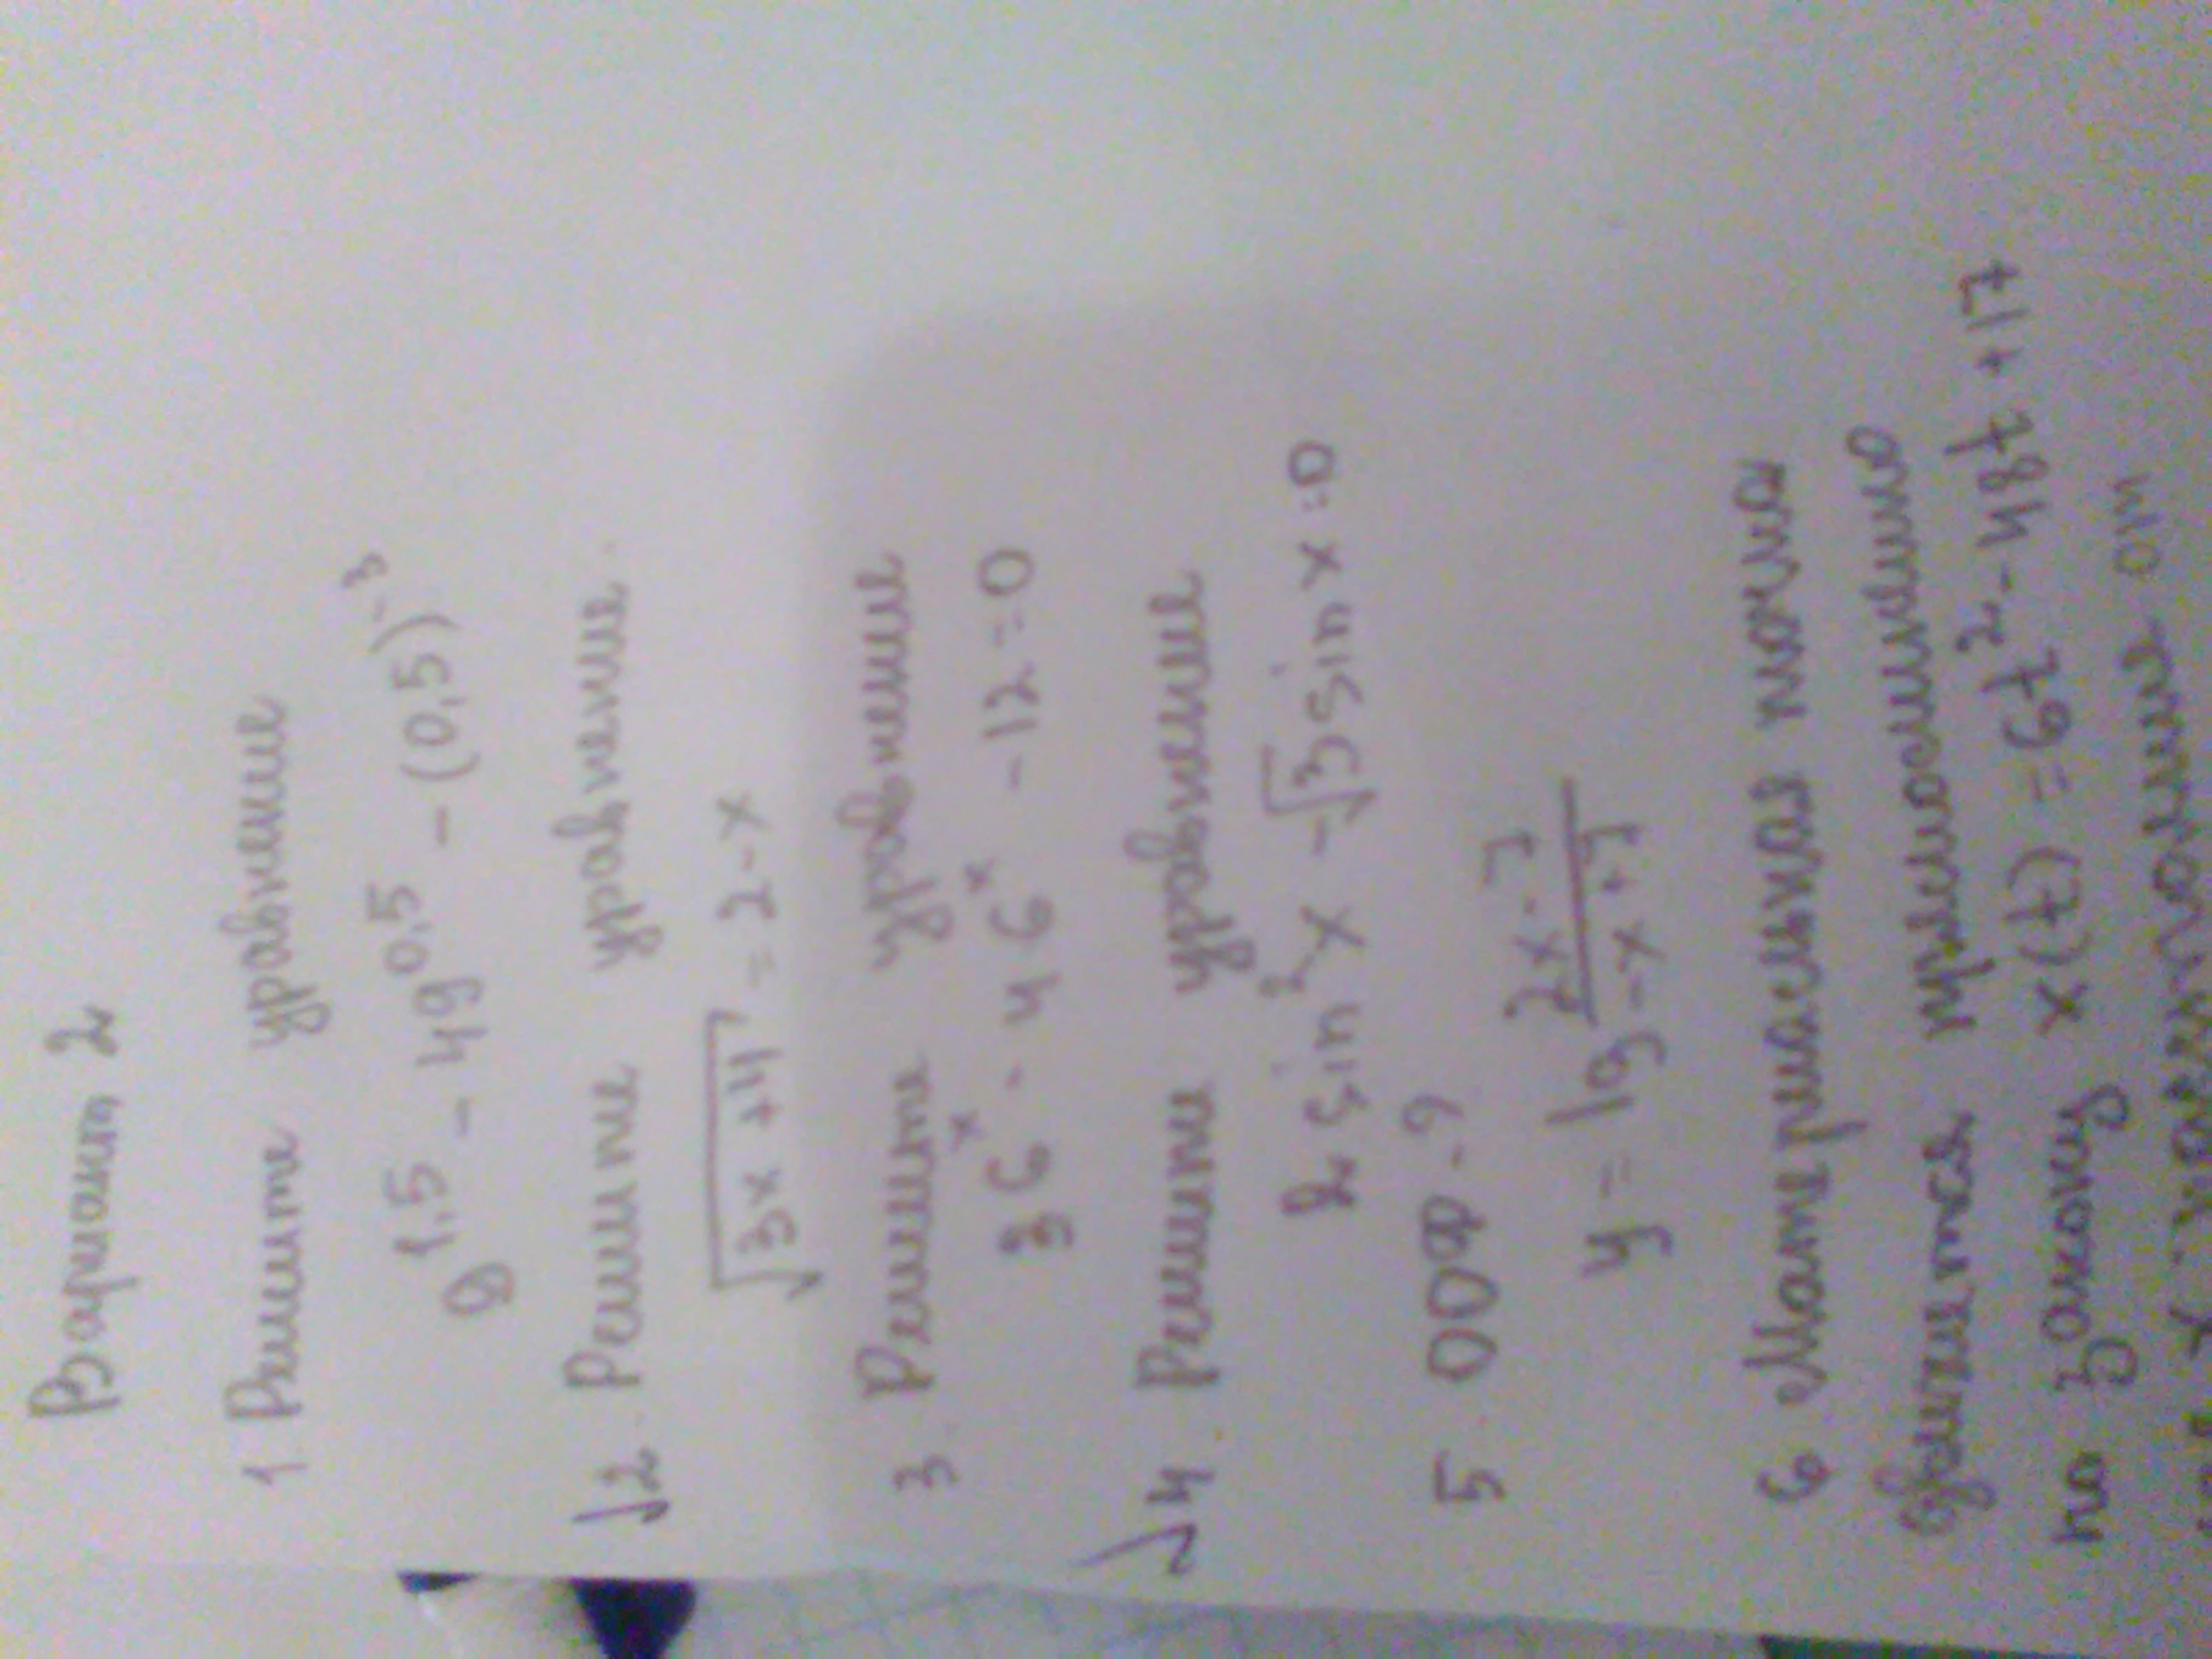 Вариант 2
1 Решите уравнение
9^1,5 - 49^0,5 - (0,5)^-3
√2. Решите уравнение.
√3x+4 = 2-x
3. Решите уравнение
36^x - 4 6^x - 12=0
√4. Решите уравнение
2 sin²x - √3 sin x=0
5. ООФ-?
y = lg (2x-7)/(-x+7)
6 Материальная точка
движется прямолинейно
по закону x(t)=6t²-48t+17